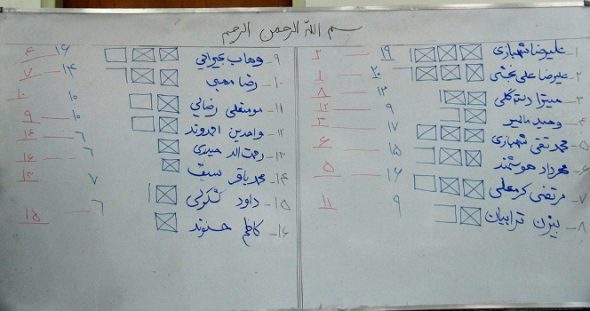 بسم الله الرحمن الرحیم
۱- علیرضا شهبازی ۱۹ ۲
۲- علیرضا علی بخشی ۲۰ ۱
۳- میترا دسته گلی ۱۲ ۸
۴- وحید ۹ ۱۲
۵- محمد تقی شهبازی ۱۷ ۳
۶- مهرداد هوشمند ۱۵ ۶
۷- مرتضی کرمعلی ۱۶ ۵
۸- بیژن ترابیان ۹ ۱۱
۹- وهاب ۱۶ ۴
۱۰- رضا محبی ۱۴ ۷
۱۱- مومنعلی رضائی ۱۰ ۱۰
۱۲- واحدین احمدوند ۱۰ ۹
۱۳- رحمت اله حیدری ۶ ۱۴
۱۴- محمد باقر سبقت ۶
۱۵- داود ۷
۱۶- کاظم حسنوند ۶ ۱۵